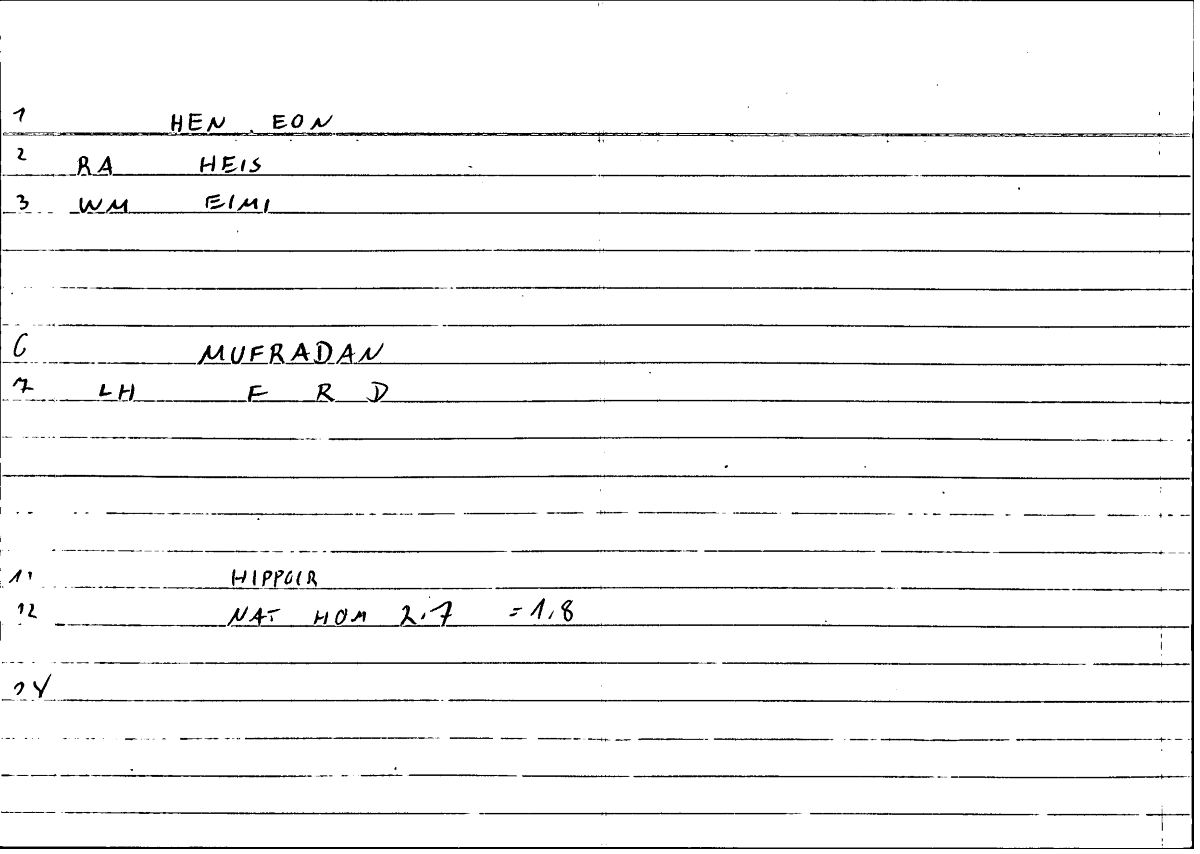 1 HEN EON
2 RA HEIS
3 WM EIMI
6 MUFRADAN
7 LH F R D
11 HIPPOCR
12 NAT HOM 2.7 = 1.8